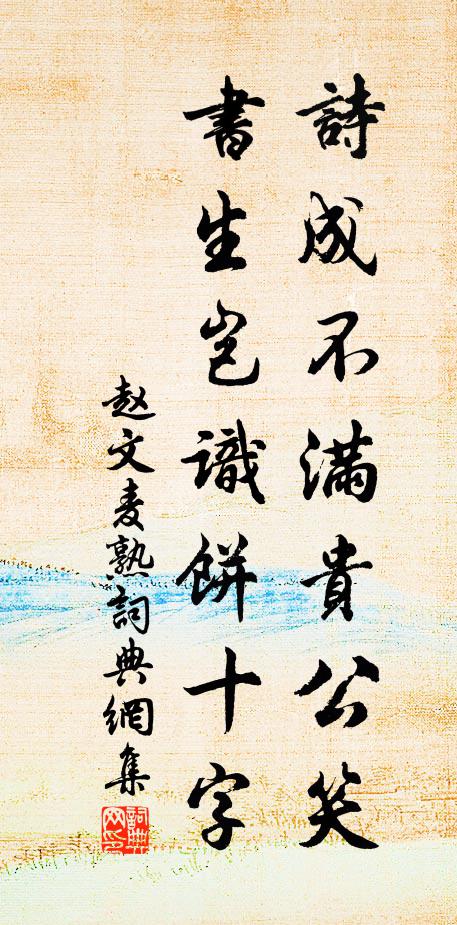 詩成不滿貴公笑
書生岂識餅十字
赵文麦熟詞典網集
詞典网句